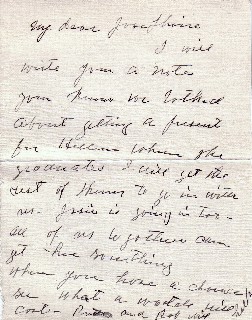 My dear Josephine
I will
write you a note
you know we talked
about getting a present
for Hellen when she
graduates I will get the
rest of them to go in with
us. Josie is going in too -
all of us together can
get her something
when you have a chance
see what a watch will
cost - and